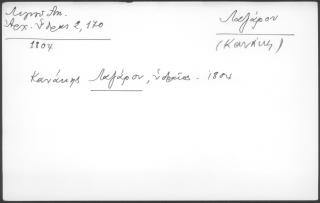 Λιγνού Αν.
Αρχ. Ύδρας 2, 170
1804
Λαζάρου
(Κανάκης)
Κανάκης Λαζάρου, υδραίος - 1804